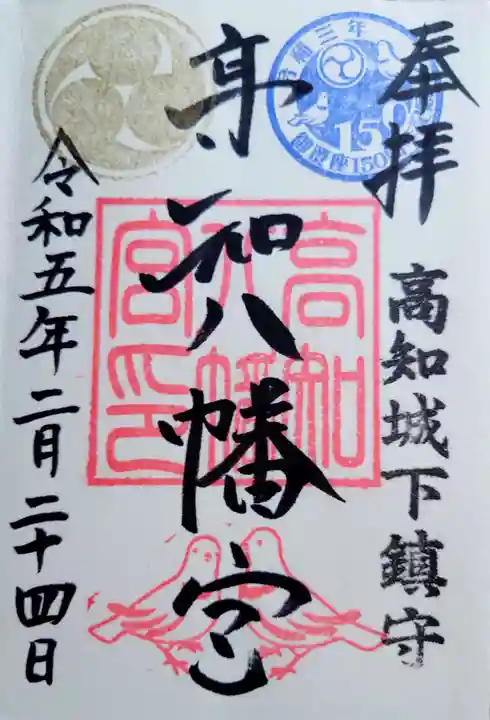 奉拝
高知城下鎮守
高知八幡宮
令和五年二月二十四日
高知
八幡
宮印
三年
150
御鎮座150